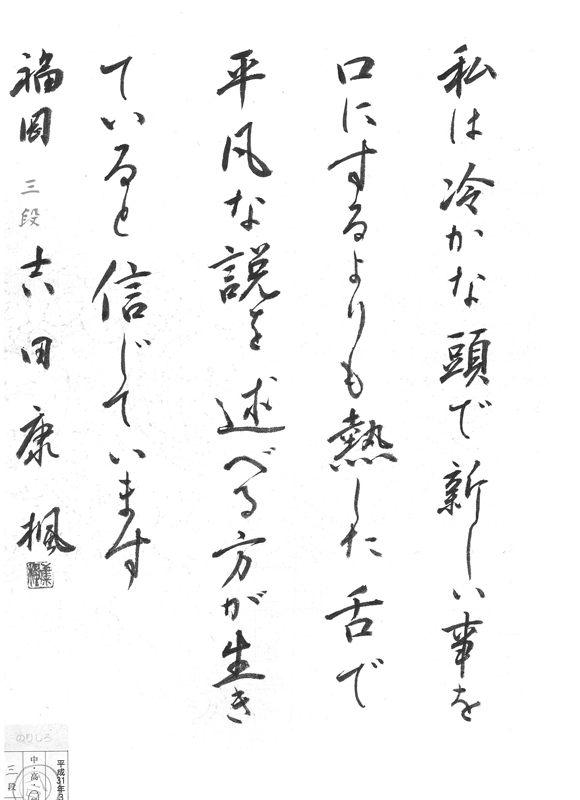 私は冷かな頭で新しい事を
口にするよりも熱した舌で
平凡な説を述べる方が生き
ていると信じています
福岡 三段 吉田康楓
のりしろ
平成31年3
中・高・
三段